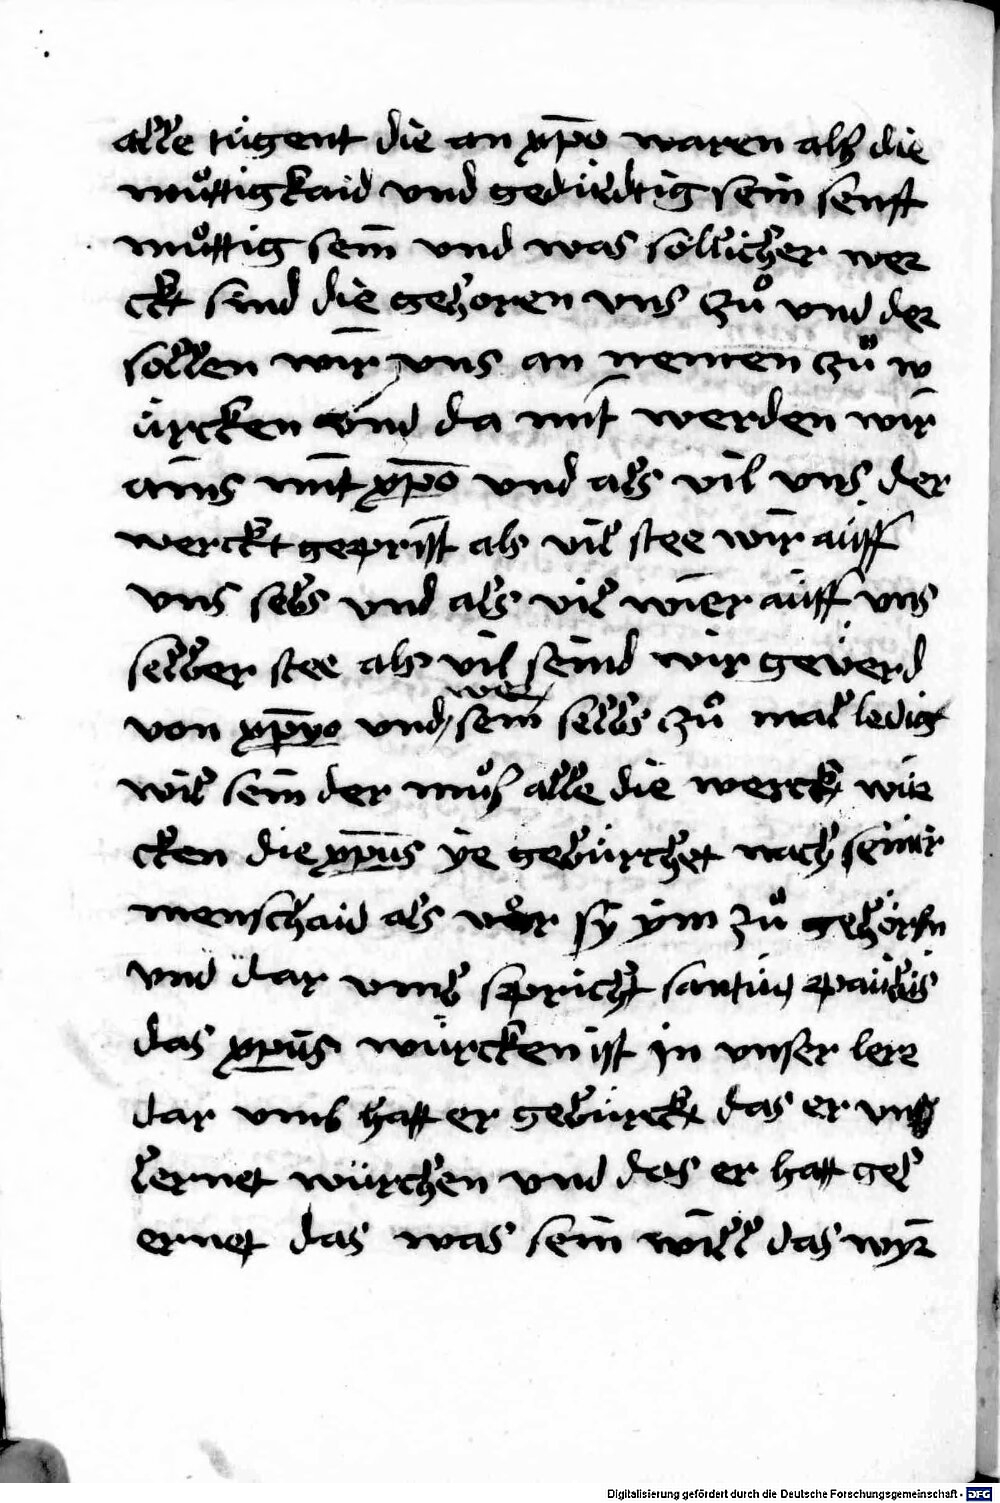 alle tugent die an xp̄o waren als die
muͦttigkaid vnd gedultig sein senft
muͦttig sein vnd was sollicher wer
ckt sind die gehoren vns zuͦ vnd der
sollen wir vns an nemen zuͦ w
ürcken vnd da mit werden wir
ains mit xp̄o vnd als vil vns der
werckt geprist als vil stee wir auff
vns selbs vnd als vil wier auff vns
selber stee als vil seind wir geverd
von xp̄o vnd wer sein selbs zuͦ mal ledig
wil sein der muͦß alle die werck wür
cken die xp̄us ye gewürchet nach seiner
menschaid als ver sy ym zuͦ gehörn
vnd dar vmb spricht santus paulus
das xp̄us würcken ist in vnser lere
dar vmb hatt er gewürckt das er vns
lernet würchen vnd das er hatt gel
ernet das was sein will das wyr
Digitalisierung gefördert durch die Deutsche Forschungsgemeinschaft - DFG